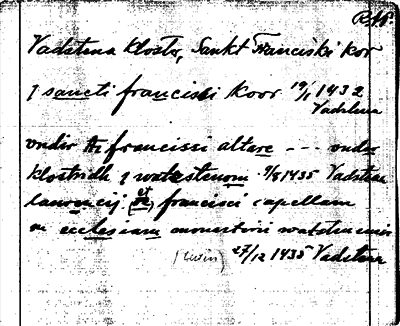 RAP
Vadstena kloster, Sankt Franciski kor
J sancti francissi koor 19/1 1432
Vadstena
vndir Sti francissi altare --- vndir
klostridh j watzstenom 9/8 1435 Vadstena
laurencij (et) francisci capellam
in ecclesiam monasterii watzstenensis
(latin) 27/12 1435 Vadstena